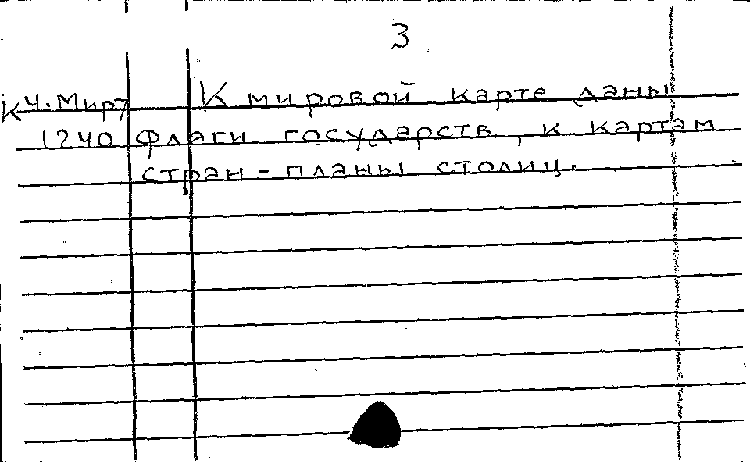 3
К Ч.Мир7 К мировой карте даны
1240 флаги государств, к картам
стран - планы столиц.